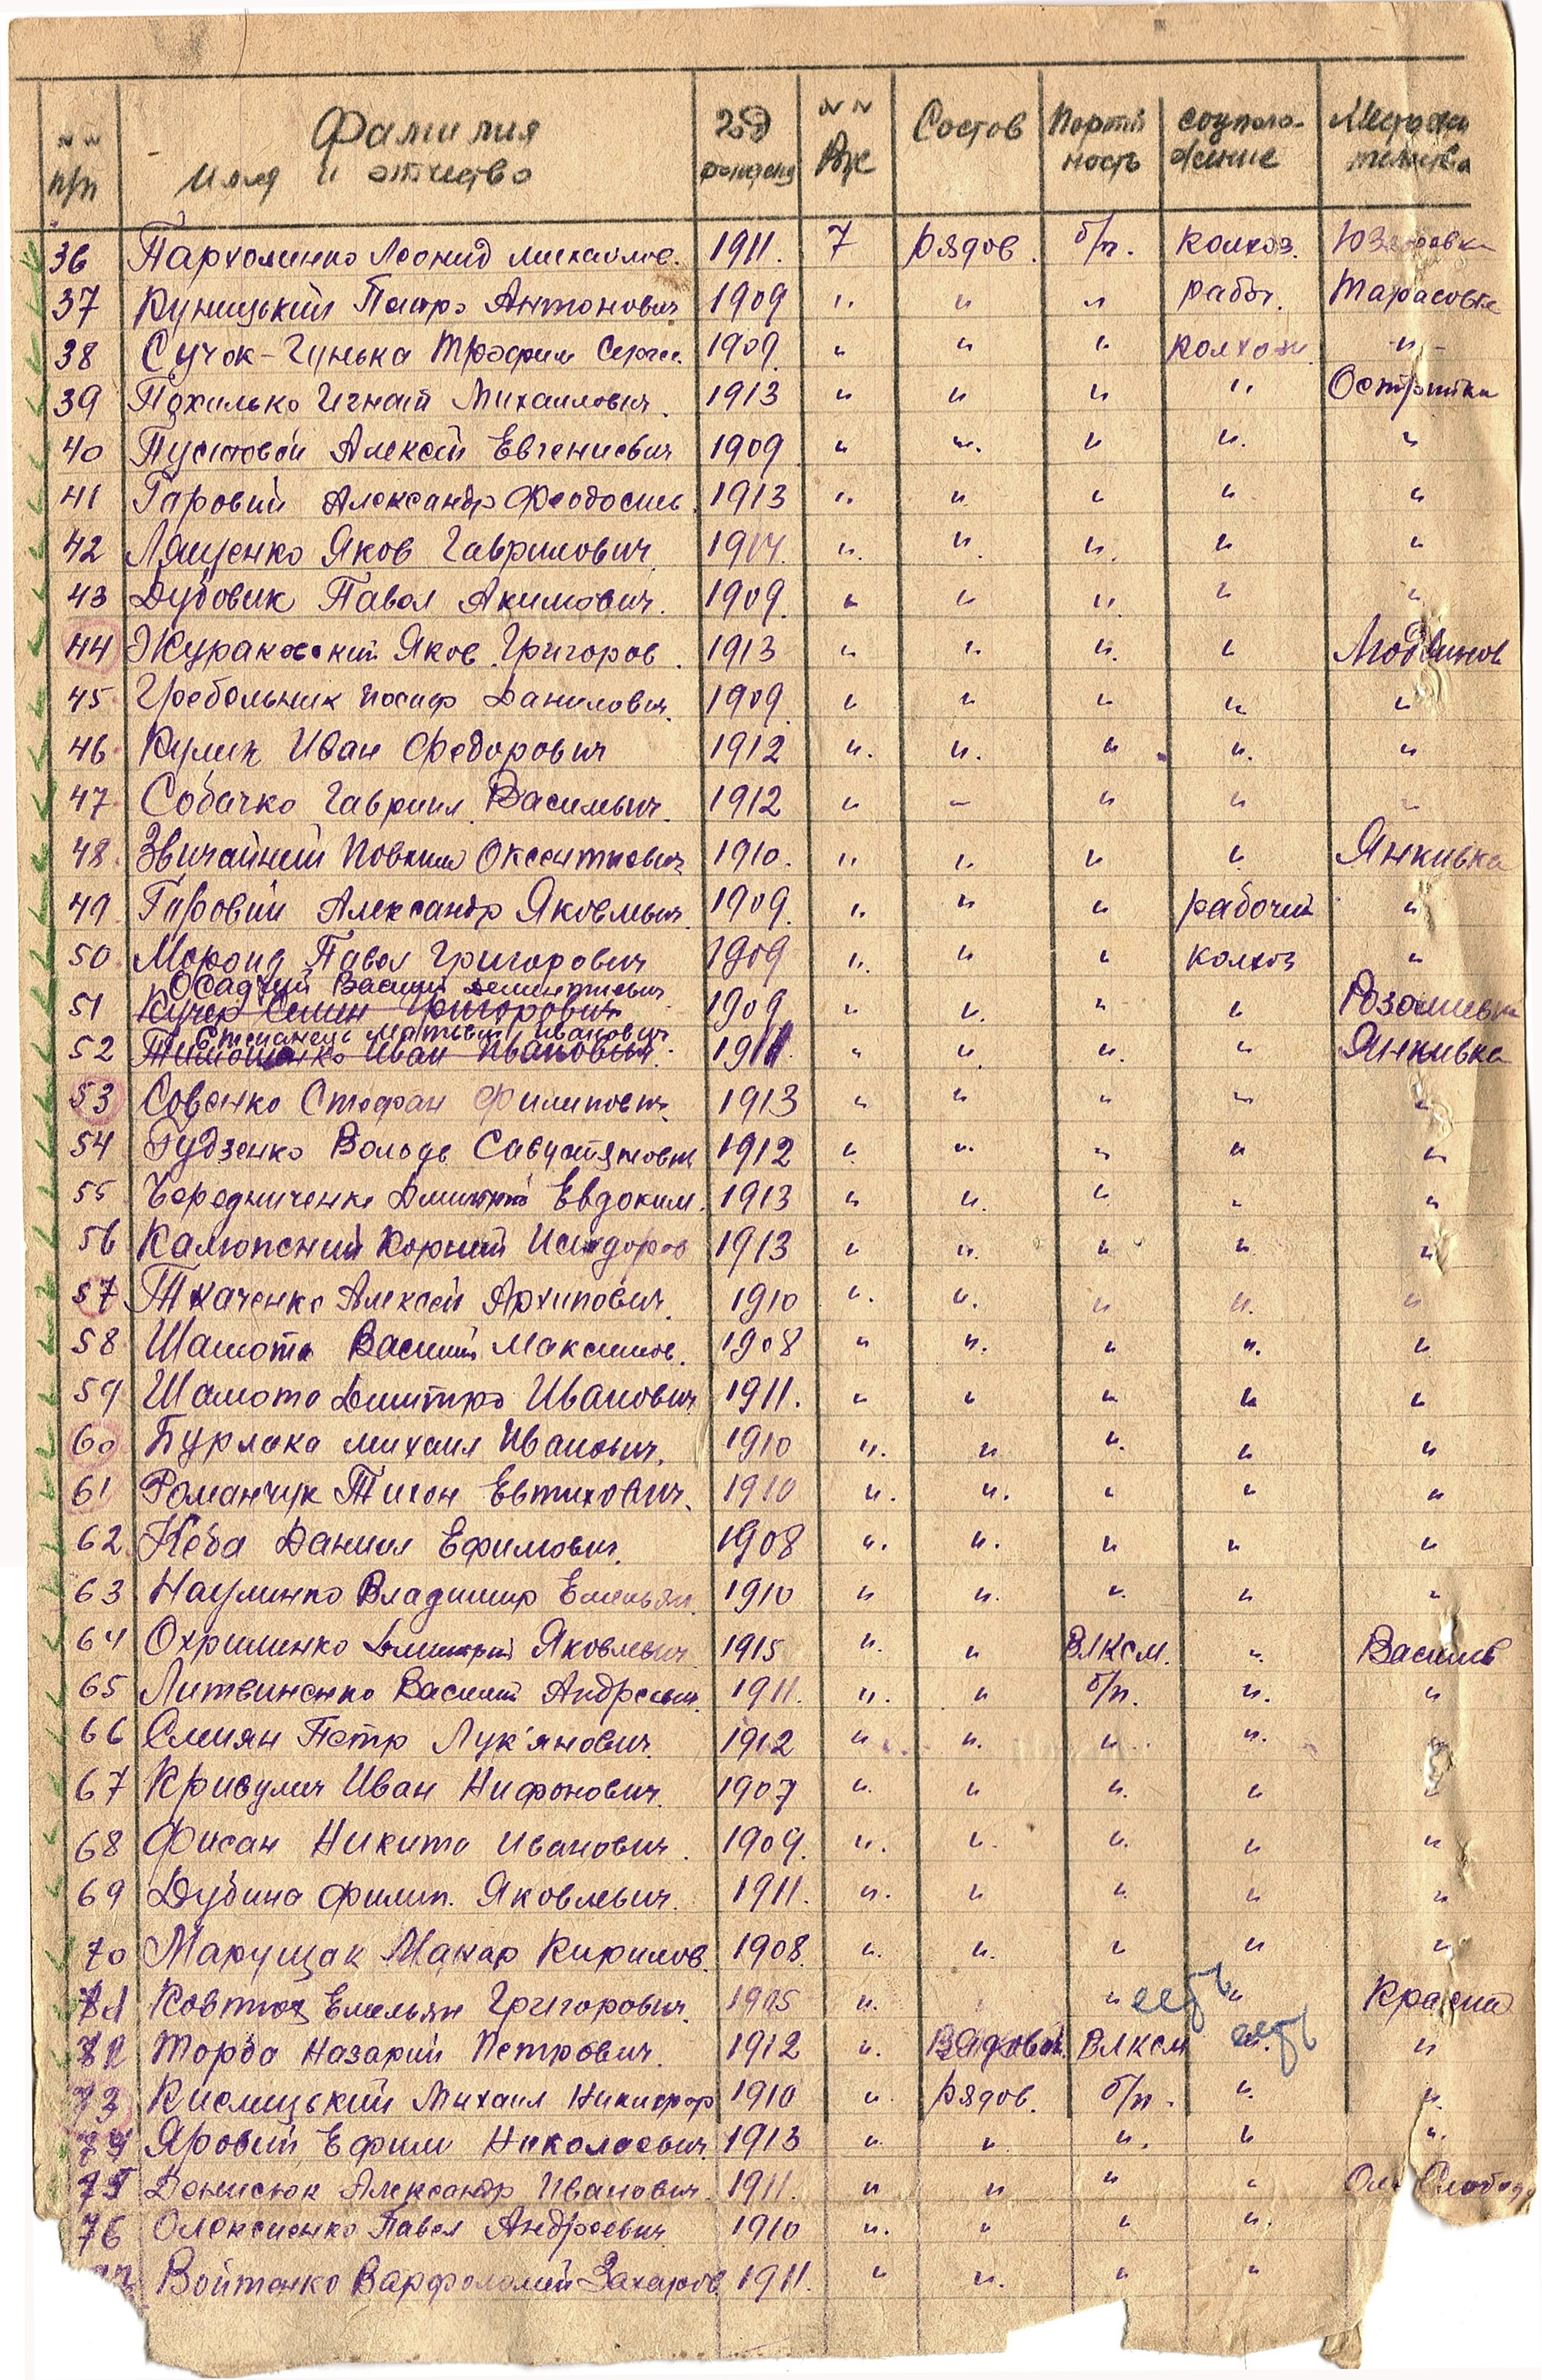 №№ п/п Фамилия имя и отчество год рождения №№ ВУС Состов Портийность соцположение Место жительства
36 Пархоменко Леонид Михайлов. 1911. 7 рядов. б/п. колхоз.
37 Куницький Петро Антонович 1909 " " " работ. Тарасовка
38 Сучок-Гунька Трофим Сергее. 1909. " " " колхозн. "
39 Похилько Игнат Михаилович. 1913 " " " " Острийки
40 Пустовой Алексей Евгениевич 1909 " " " " "
41 Гаровий Александр Феодосиев. 1913 " " " " "
42 Лященко Яков Гаврилович. 1914. " " " " "
43 Дубовик Павел Акимович. 1909. " " " " "
44 Жураковский Яков Григоров. 1913 " " " "
45 Гребельник Иосиф Данилович. 1909. " " " " "
46. Кулик Иван Федорович 1912 " " " " "
47. Собачко Гавриил Васильвич. 1912 " " " " "
48. Звичайний Оксентиевич 1910. " " " " Янкивка
49. Гаровий Александр Яковлевич. 1909. " " " рабочий "
50. Павел Григорович 1909 " " " колхоз "
51 Осадчий Василий
Кучер Семен Григорович 1909 " " " "
52 Степанець Матвий Иванович
Тимошенко Иван Иванович. 1911. " " " " Янкивка
53 Совенко Стефан Филипович. 1913 " " " " "
54 Гудзенко Вольде Савустянович 1912 " " " " "
55 Бередниченко Дмитрий Евдоким. 1913 " " " " "
56 Корний Исидоров 1913 " " " " "
57 Ткаченко Алексей Архипович. 1910 " " " " "
58 Шамота Василий Максимов. 1908 " " " " "
59 Шамота Дмитро Иванович 1911. " " " " "
60 Бурлака Михаил Иванович. 1910 " " " " "
61 Романчук Тихон Евтихович. 1910 " " " " "
62. Неба Даниил Ефимович. 1908 " " " " "
63. Науменко Владимир Емельян. 1910 " " " " "
64 Охрименко Дмитрий Яковлевич 1915 " " ВЛКСМ. " Василів
65 Литвиненко Василий Андреевич. 1911. " " б/п. " "
66 Смиян Петр Лук'янович. 1912 " " " " "
67 Кривулич Иван Нифонович. 1907 " " " " "
68 Фисан Никита Иванович. 1909. " " " " "
69 Дубина Филип. Яковлевич. 1911. " " " " "
70 Марущак Макар Кирилов. 1908. " " " " "
71 Ковтюх Емельян Григорович. 1905 " " "
72 Торба Назарий Петрович. 1912 " рядовой. ВЛКСМ " "
73 Кислицький Михаил Никифор 1910 " рядов. б/п. " "
74 Яровий Ефим Николаевич. 1913 " " " " "
75 Денисюк Александр Иванович. 1911. " " " " Слобода
76 Олексиенко Павел Андреевич. 1910 " " " "
77 Войтенко Варфоломей Захаров. 1911. " " " "